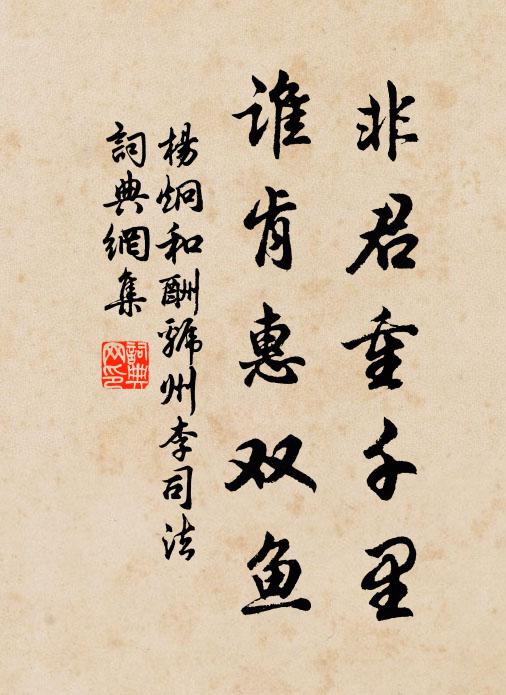 非君重千里
谁肯惠双鱼
杨炯和酬虢州李司法
词典網集
詞典网印